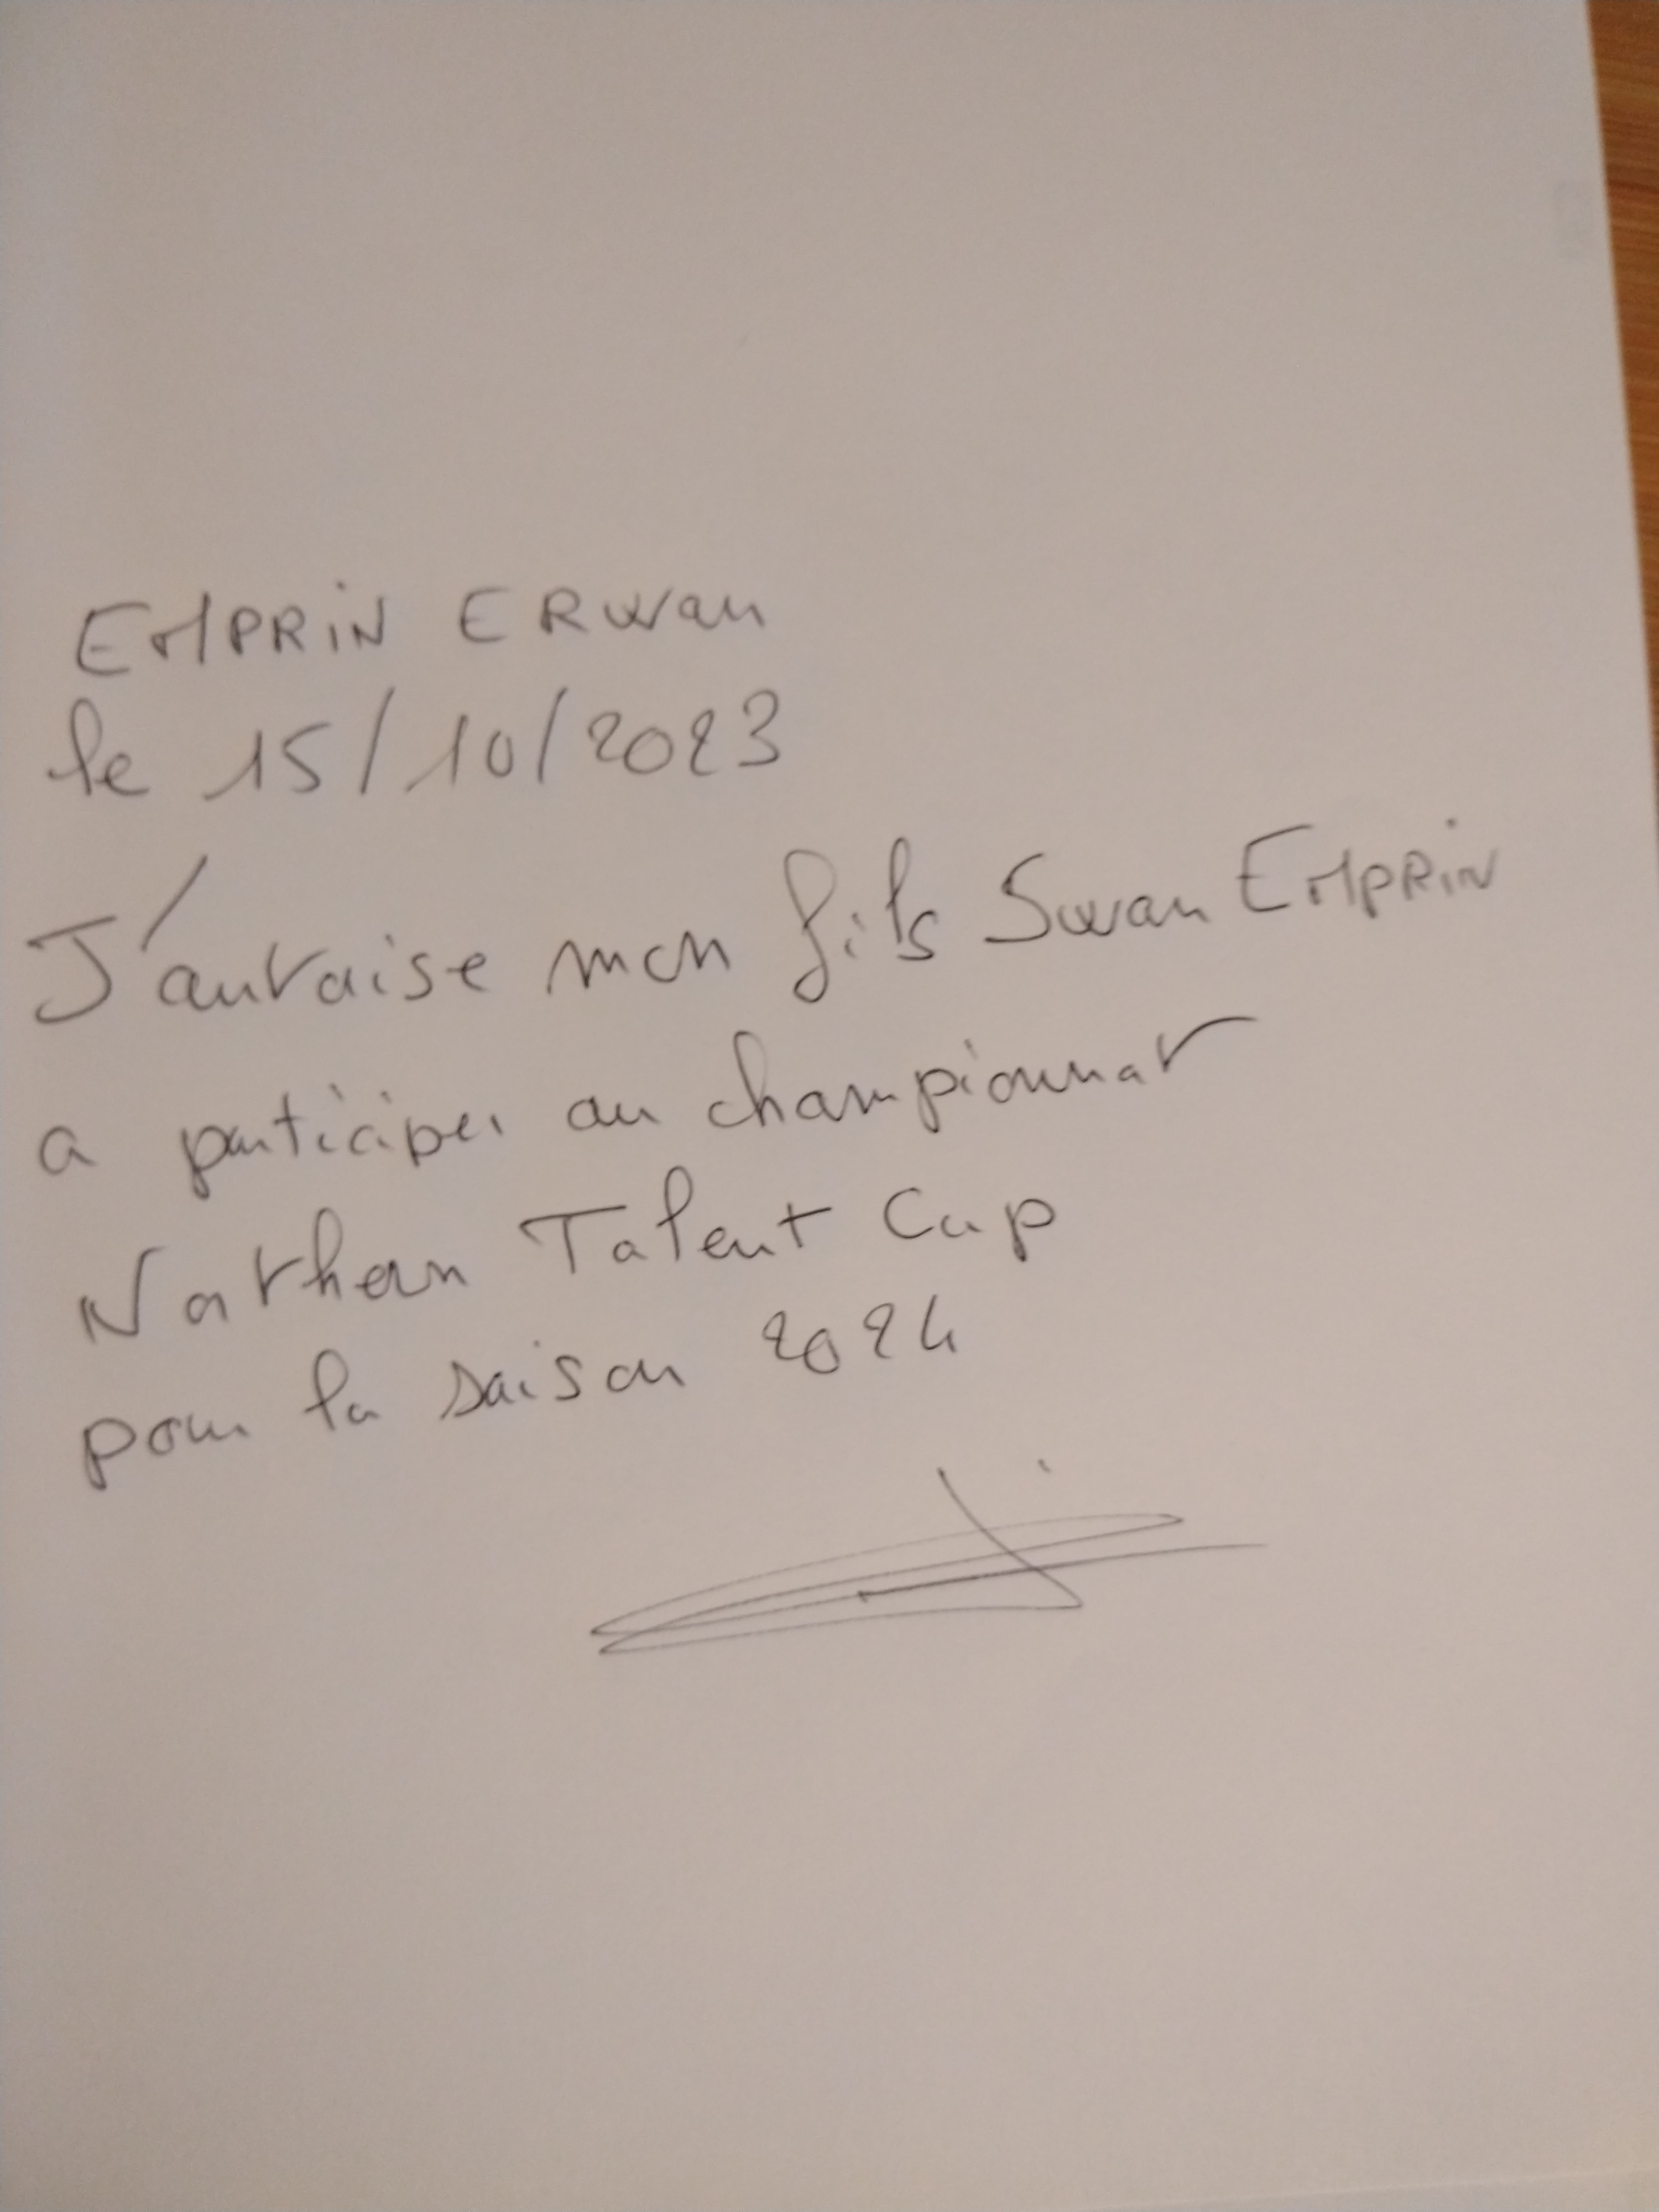 EMPRiN ERwan
le 15/10/2023
J'autorise mon fils Swan EMPRiN
a participer au championnat
Northern Talent Cup
pour la saison 2024